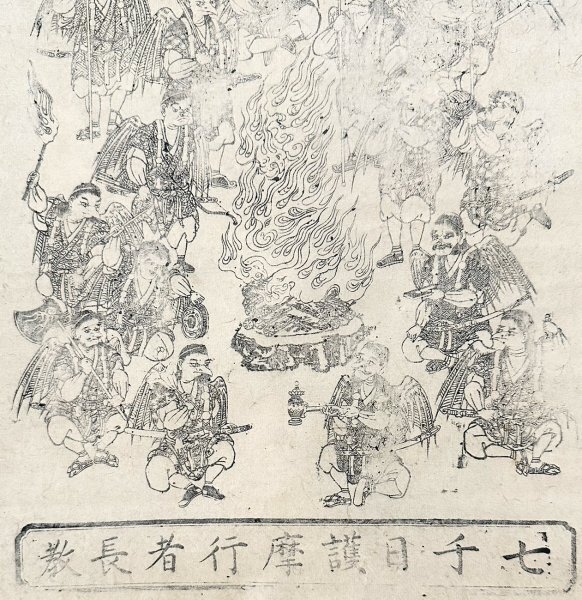 七千日護摩行者長教